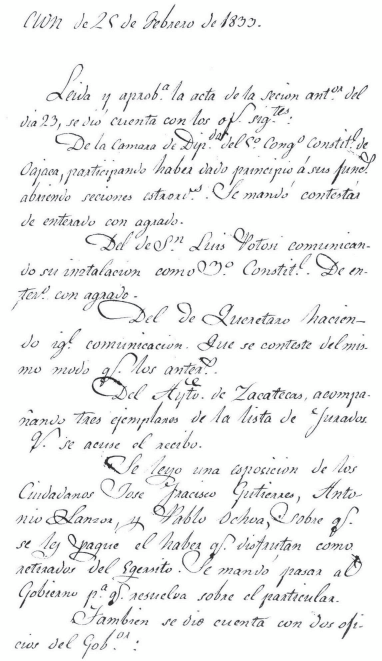 de 25 de Febrero de 1833.
Leida y aprob.ª la acta de la secion ant.or del
dia 23, se dió cuenta con los of.s sig.tes:
De la Camara de Dip.dos del 5º Cong.º Constit.l de
Oajaca, participando haber dado principio á sus func.s
abriendo seciones estraord.s. Se mandó contestar
de enterado con agrado.
Del de S.n Luis Potosi comunican-
do su instalacion como 3.º Constit.l. De en-
ter.º con agrado.
Del de Queretaro hacien-
do ig.l comunicacion. Que se conteste del mis-
mo modo q.e los anter.s.
Del Ayto. de Zacatecas, acompa-
ñando tres ejemplares de la lista de Jurados.
Q. se acuse el recibo.
Se leyo una esposicion de los
Ciudadanos Jose Fracisco Gutierres, Anto-
nio Llanzor, y Pablo Ochoa, sobre q.e
se les pague el haber q.e disfrutan como
retirados del Egercito. Se mandó pasar al
Gobierno p.ª q.e resuelva sobre el particular.
Tambien se dió cuenta con dos ofi-
cios del Gob.or: